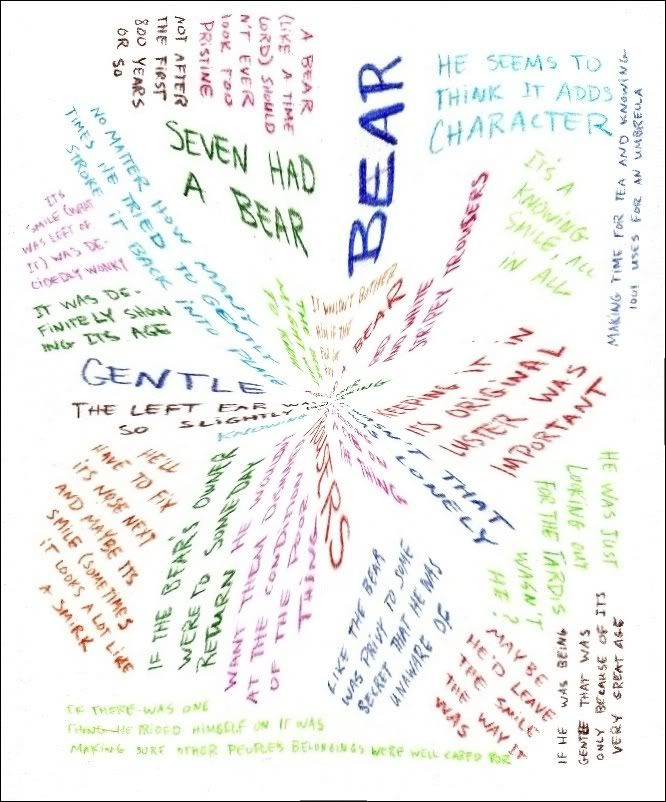 A BEAR
(LIKE A TIME
LORD) SHOULD
N'T EVER
LOOK TOO
PRISTINE
NOT AFTER
THE FIRST
800 YEARS
OR SO
BEAR
HE SEEMS TO
THINK IT ADDS
CHARACTER
MAKING TIME FOR TEA AND KNOWING
1001 USES FOR AN UMBRELLA
IT'S A
KNOWING
SMILE, ALL
IN ALL
SEVEN HAD
A BEAR
NO MATTER HOW MANY
TIMES HE TRIED TO GENTLY
STROKE IT BACK INTO PLACE
ITS
SMILE (WHAT
WAS LEFT OF
IT) WAS DE-
CIDEDLY WONKY
IT WAS DE-
FINITELY SHOW
ING ITS AGE
IT WOULDN'T BOTHER
HIM IF THE
BEAR
RED AND WHITE
STRIPEY TROUSERS
GENTLE
THE LEFT EAR WAS
SO SLIGHTLY
KNOWING
KEEPING IT IN
ITS ORIGINAL
LUSTER WAS
IMPORTANT
ISN'T THAT
LONELY
HE WAS JUST
LOOKING OUT
FOR THE TARDIS
WASN'T
HE?
HE'LL
HAVE TO FIX
ITS NOSE NEXT
AND MAYBE ITS
SMILE (SOMETIMES
IT LOOKS A LOT LIKE
A SMIRK
IF THE BEAR'S OWNER
WERE TO SOMEDAY
RETURN HE WOULDN'T
WANT THEM DISMAYED
AT THE CONDITION
OF THE POOR
THING
LIKE THE BEAR
WAS PRIVY TO SOME
SECRET THAT HE WAS
UNAWARE OF
MAYBE
HE'D LEAVE
THE SMILE
THE WAY IT
WAS
IF HE WAS BEING
GENTLE THAT WAS
ONLY BECAUSE OF ITS
VERY GREAT AGE
IF THERE WAS ONE
THING HE PRIDED HIMSELF ON IT WAS
MAKING SURE OTHER PEOPLES BELONGINGS WERE WELL CARED FOR